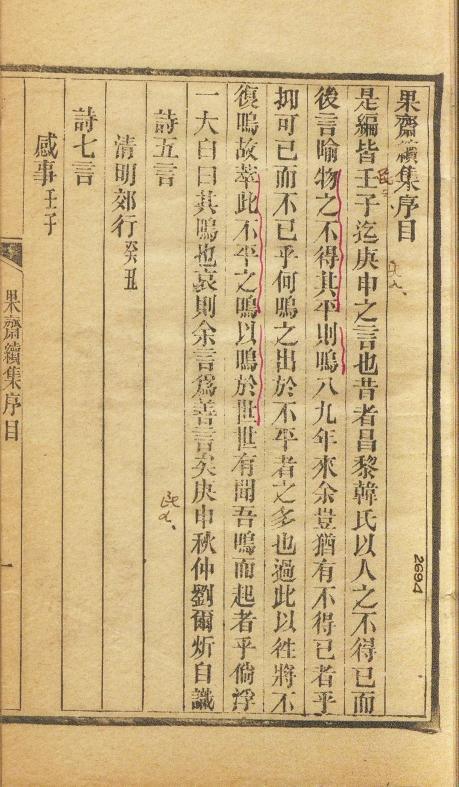 果齋續集序目
是編皆壬子迄庚申之言也昔者昌黎韓氏以人之不得已而
後言喻物之不得其平則鳴八九年來余豈猶有不得已者乎
抑可已而不已乎何鳴之出於不平者之多也過此以徃將不
復鳴故萃此不平之鳴以鳴於世世有聞吾鳴而起者乎倘浮
一大白曰其鳴也哀則余言爲善言矣庚申秋仲劉爾炘自識
詩五言
清明郊行癸丑
詩七言
感事壬子
果齋續集序目
一
民九、
民九、
2694